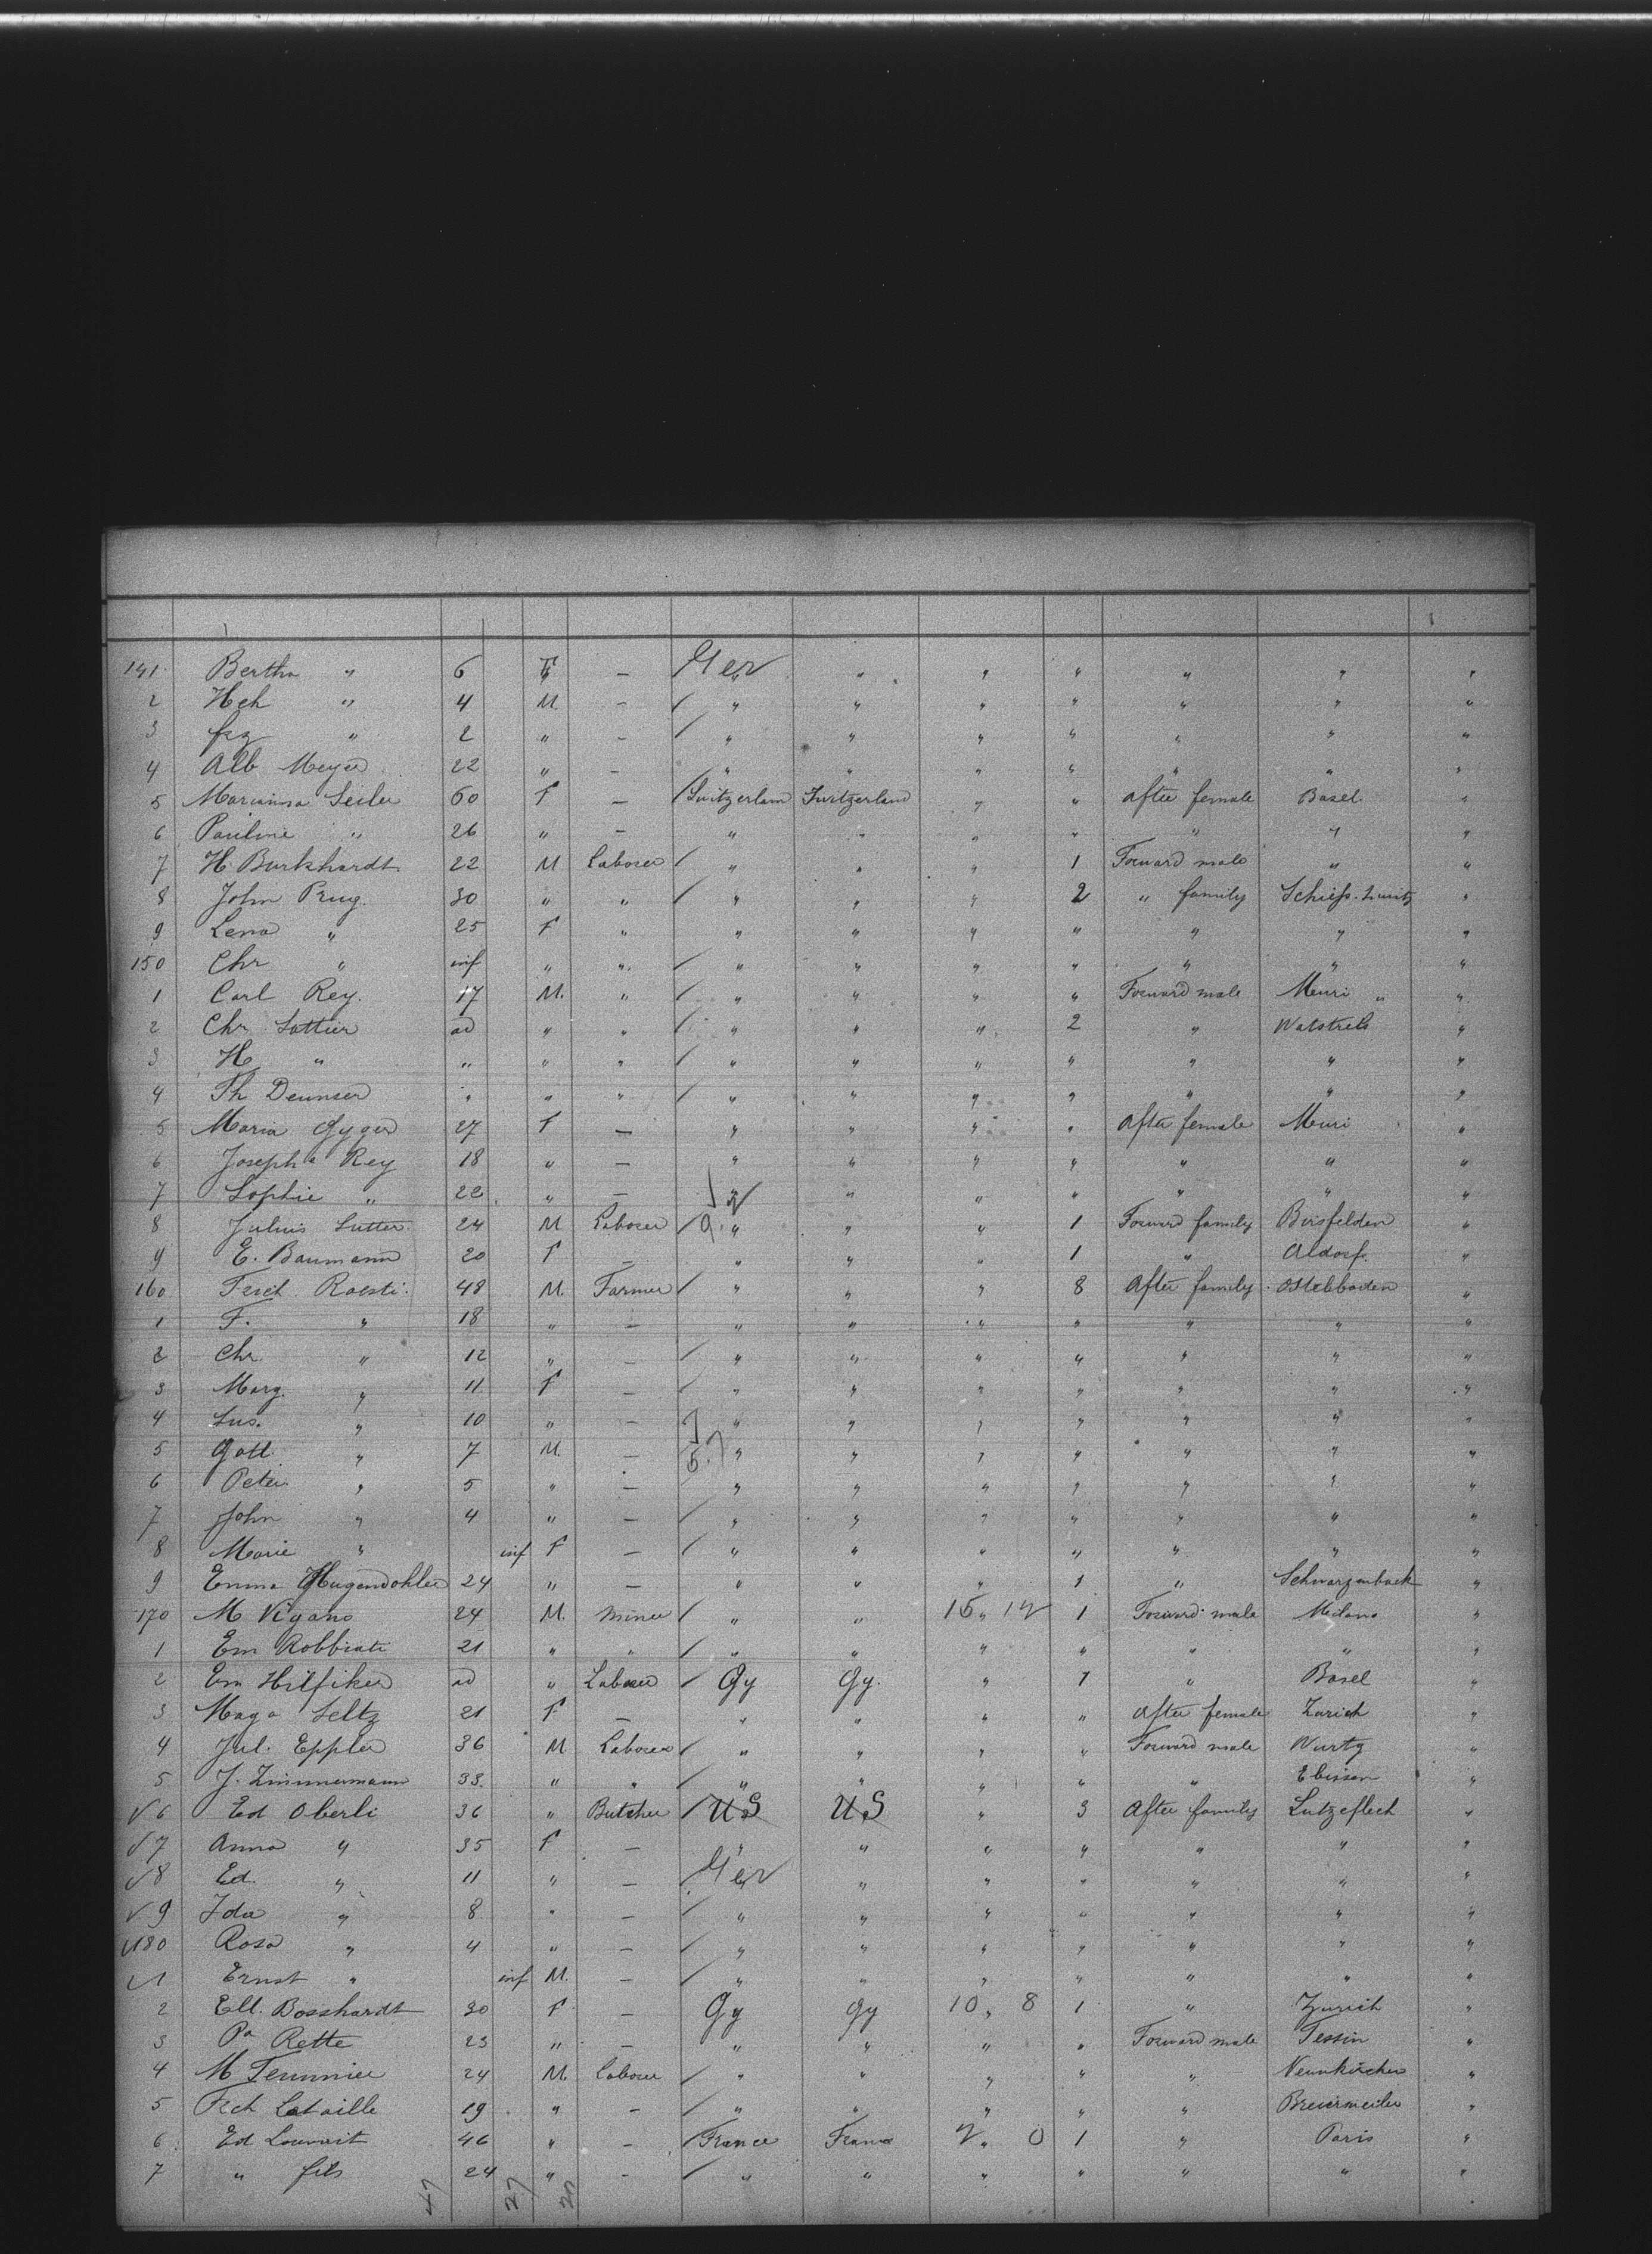 141 Bertha " 6 F — Ger " " " " " "
2 Hch " 4 M. — " " " " " " "
3 frz " 2 " — " " " " " " "
4 Alb Meyer 22 " — " " " " " " "
5 Marianna Seiler 60 F — Switzerlam Switzerland " " After female Basel "
6 Pauline " 26 " — " " " " " " "
7 H. Burkhardt 22 M Laborer " " " 1 Forward male " "
8 John Prug 30 " " " " " 2 " family "
9 Lena " 25 F " " " " " " " "
150 Chr " inf " " " " " " " " "
1 Carl Rey. 17 M. " " " " " Forward male Muri " "
2 Chr Sattier ad " " " " " 2 " "
3 H " " " " " " " " " " "
4 Th " " " " " " " " " "
5 Maria Gyger 27 F — " " " " After female Muri "
6 Josepha Rey 18 " — " " " " " " "
7 Sophie " 22 " — " " " " " " "
8 Julius Sutter 24 M Laborer " " " 1 Forward family Birsfelden "
9 E. Baumann 20 F — " " " 1 " Aldorf "
160 Fried. Roesti 48 M. Farmer " " " 8 After family "
1 F. " 18 " — " " " " " " "
2 Chr. " 12 " — " " " " " " "
3 Marg. " 11 F — " " " " " " "
4 Sus. " 10 " — " " " " " " "
5 Gott. " 7 M. — " " " " " " "
6 Peter " 5 " — " " " " " " "
7 John " 4 " — " " " " " " "
8 Marie " inf F — " " " " " " "
9 Emma 24 " — " " " 1 " Schwarzenback "
170 M Vigano 24 M. Miner " " 15 " 12 1 Forward male Milano "
1 Em Robbiati 21 " " " " " " " " "
2 Em Hilfiker ad " Laborer Gy Gy. " 1 " Basel "
3 Maga Seltz 21 F — " " " " After female Zurich "
4 Jul. Eppler 36 M Laborer " " " " Forward male Wurtz "
5 J. Zimmermann 33. " " " " " " " "
6 Ed Oberli 36 " Butcher US US " 3 After family Lutzeflech "
7 Anna " 35 F — " " " " " " "
8 Ed. " 11 " — Ger " " " " " "
9 Ida " 8 " — " " " " " " "
180 Rosa " 4 " — " " " " " " "
1 Ernst " inf M. — " " " " " " "
2 Ell. Bosshardt 30 F — Gy Gy 10 " 8 1 " Zurich "
3 Pa Rette 23 " — " " " " Forward male Tessin "
4 M 24 M. Laborer " " " " " Neunkirchen "
5 Fch Lataille 19 " — " " " " " "
6 Ed 46 " — France France 2 " 0 1 " Paris "
7 " fils 24 " — " " " " " " "
47 27 20